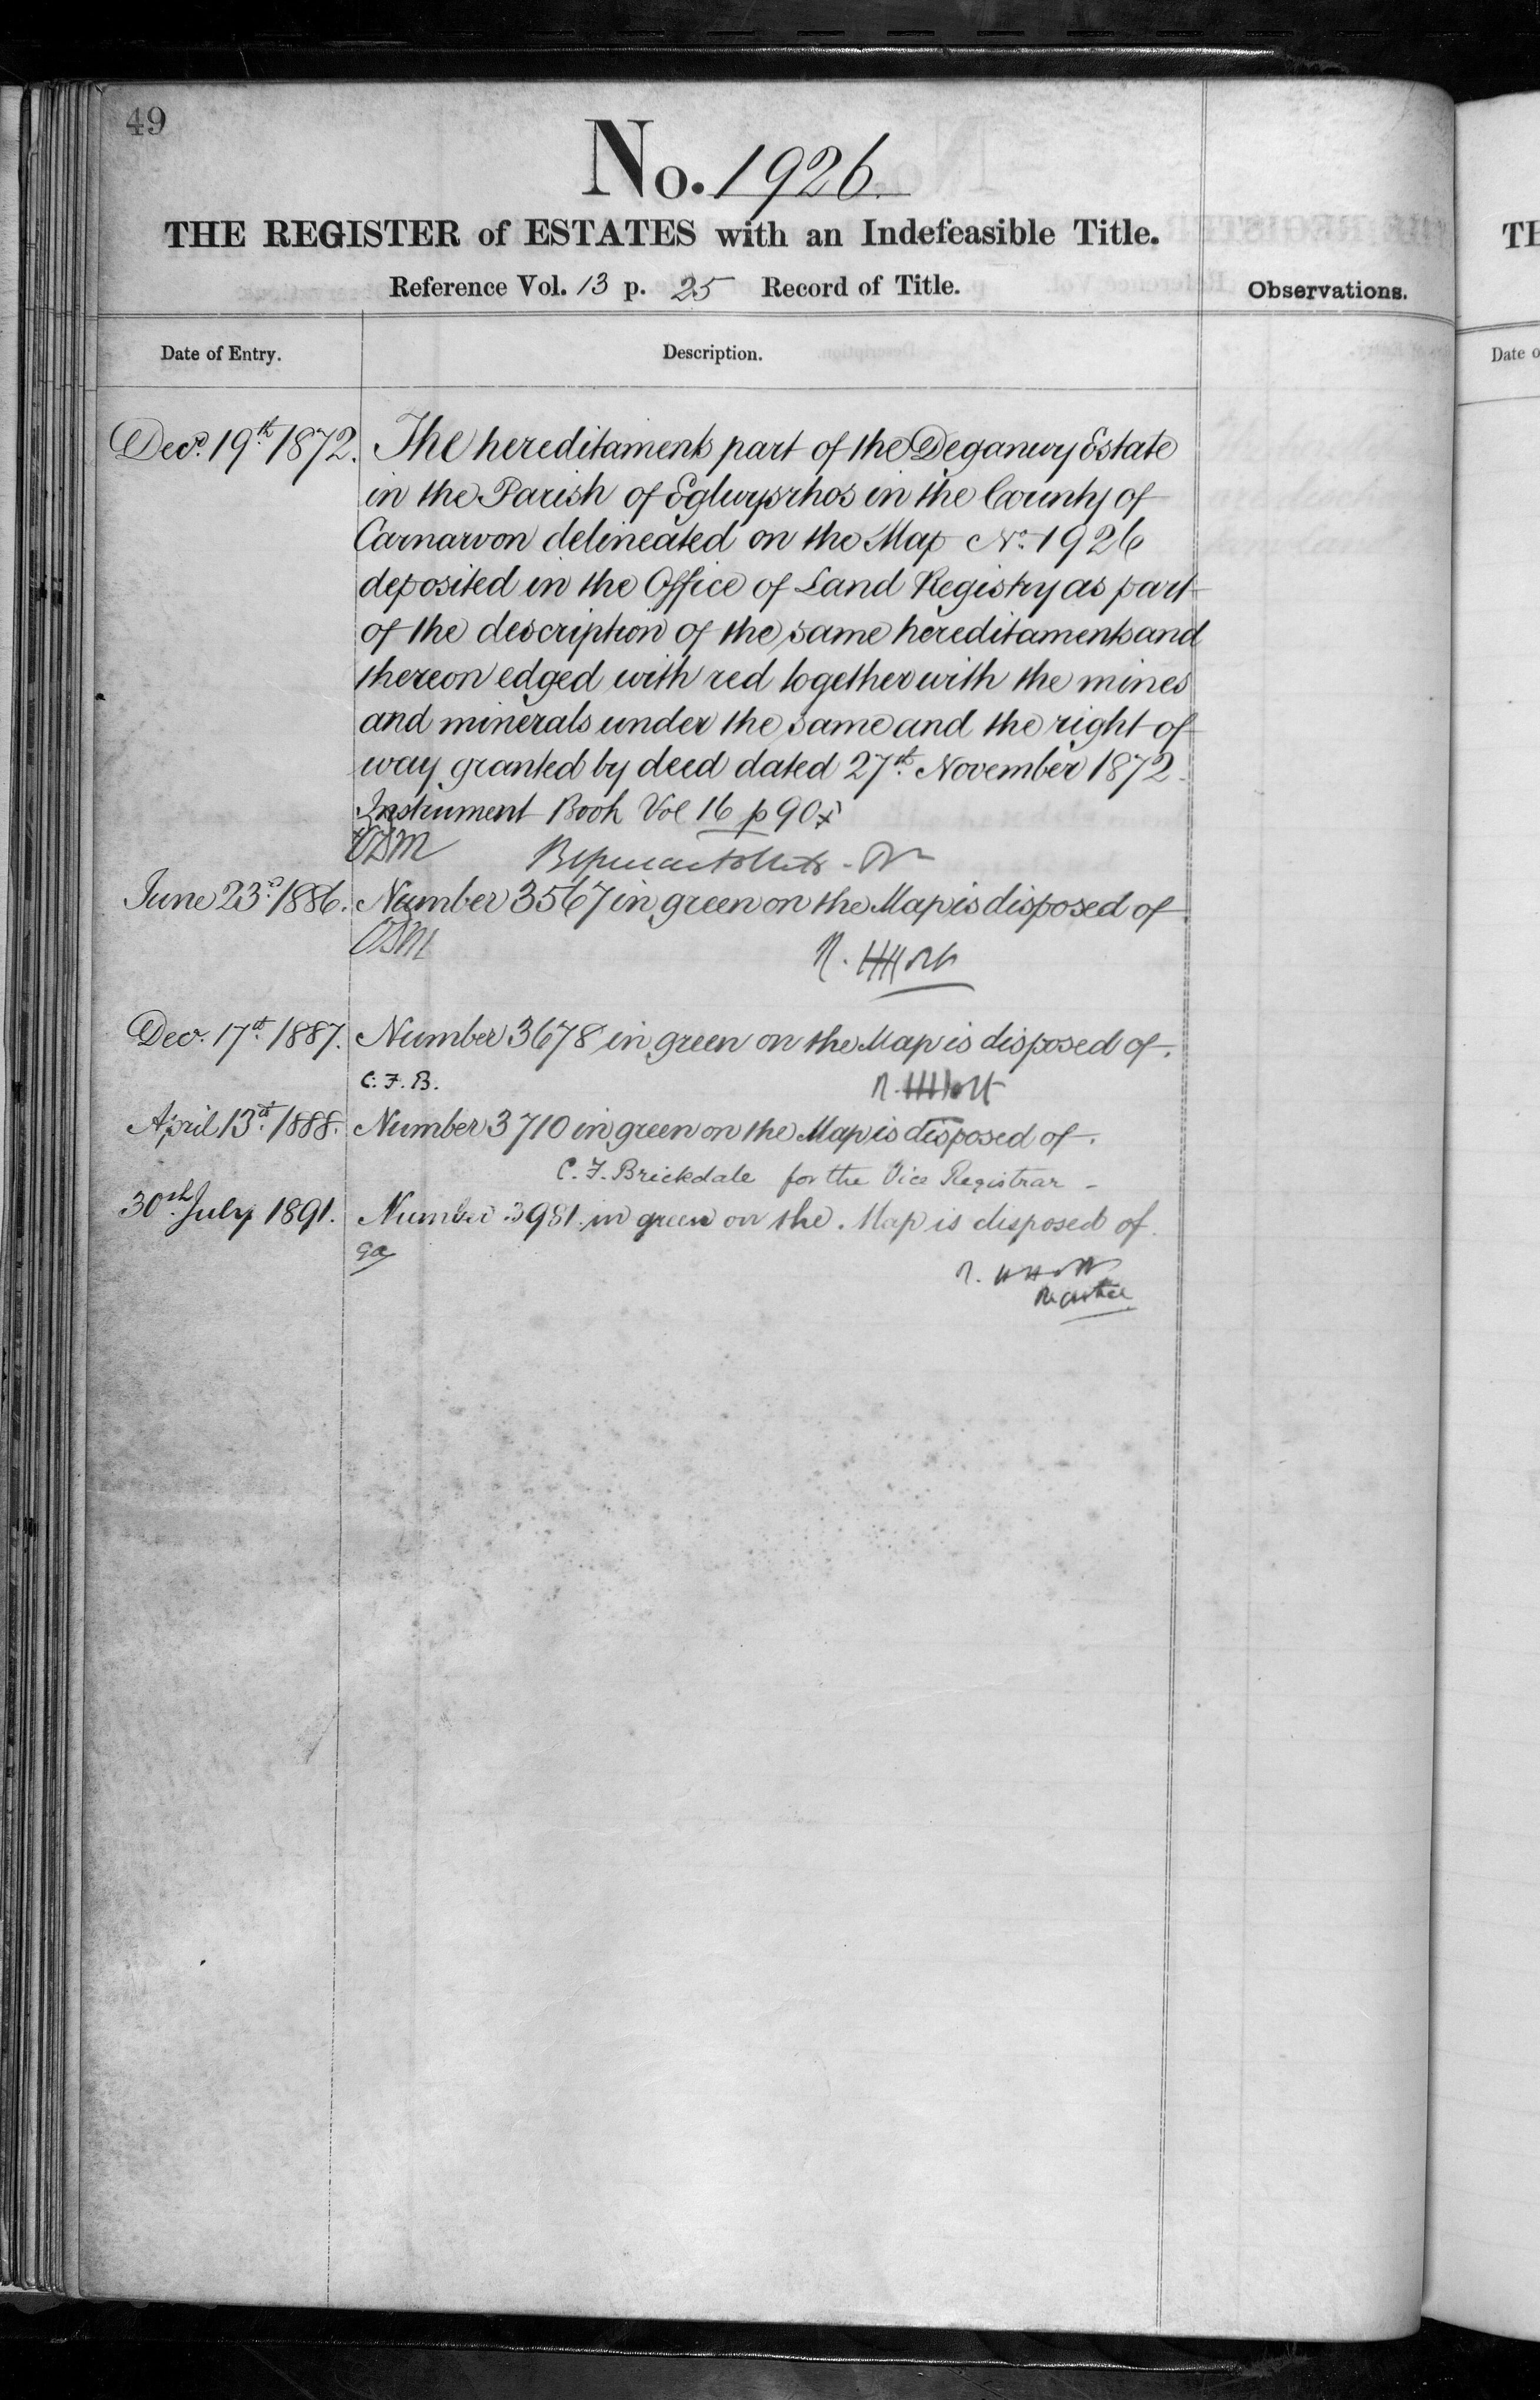 49
No. 1926.
THE REGISTER of ESTATES with an Indefeasible Title.
Reference Vol. 13 p. 25 Record of Title.
Observations.
Date of Entry.
Description.
Decr. 19th 1872. The hereditaments part of the Deganwy Estate
in the Parish of Eglwysrhos in the County of
Carnarvon delineated on the Map No. 1926
deposited in the Office of Land Registry as part
of the description of the same hereditaments and
thereon edged with red together with the mines
and minerals under the same and the right of
way granted by deed dated 27th November 1872.
Instrument Book Vol 16 p 90
June 23rd 1886. Number 3567 in green on the Map is disposed of
R. H Holt
Decr. 17th 1887. Number 3678 in green on the Map is disposed of.
C. F. B.
R. H Holt
April 13th 1888. Number 3710 in green on the Map is disposed of.
C. F. Brickdale for the Vice Registrar -
30th July 1891. Number 3981 in green on the Map is disposed of.
R. H Holt
Registrar
TH
Date o